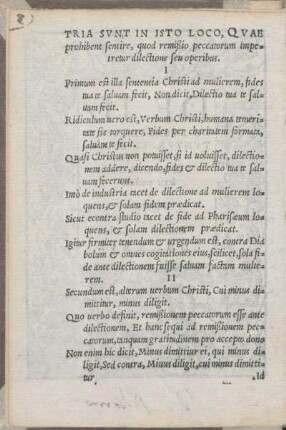 TRIA SVNT IN ISTO LOCO, QVAE
prohibent sentire, quod remissio peccatorum impe=
tretur dilectione seu operibus.
I
Primum est illa sententia Christi ad mulierem, fides
tua te saluam fecit, Non dicit, Dilectio tua te sal=
uam fecit.
Ridiculum uero est, Verbum Christi, humana temeri=
tate sic torquere, Fides per charitatem formata,
saluam te fecit.
Quasi Christus non potuisset, si id uoluisset, dilectio=
nem addere, dicendo, fides & dilectio tua te sal=
uam fecerunt.
Imò de industria tacet de dilectione ad mulierem lo=
quens, & solam fidem prædicat.
Sicut econtra studio tacet de fide ad Pharisæum lo=
quens, & solam dilectionem prædicat.
Igitur firmiter tenendum & urgendum est, contra Dia
bolum & omnes cogitationes eius, scilicet, sola fi=
de ante dilectionem fuisse saluam factam mulie=
rem.
II
Secundum est, alterum uerbum Christi, Cui minus di=
mittitur, minus diligit.
Quo uerbo definit, remissionem peccatorum esse ante
dilectionem, Et hanc sequi ad remissionem pec=
catorum, tanquam gratitudinem pro accepto dono
Non enim hic dicit, Minus dimittitur ei, qui minus di=
ligit, Sed contra, Minus diligit, cui minus dimitti=
tur
Id